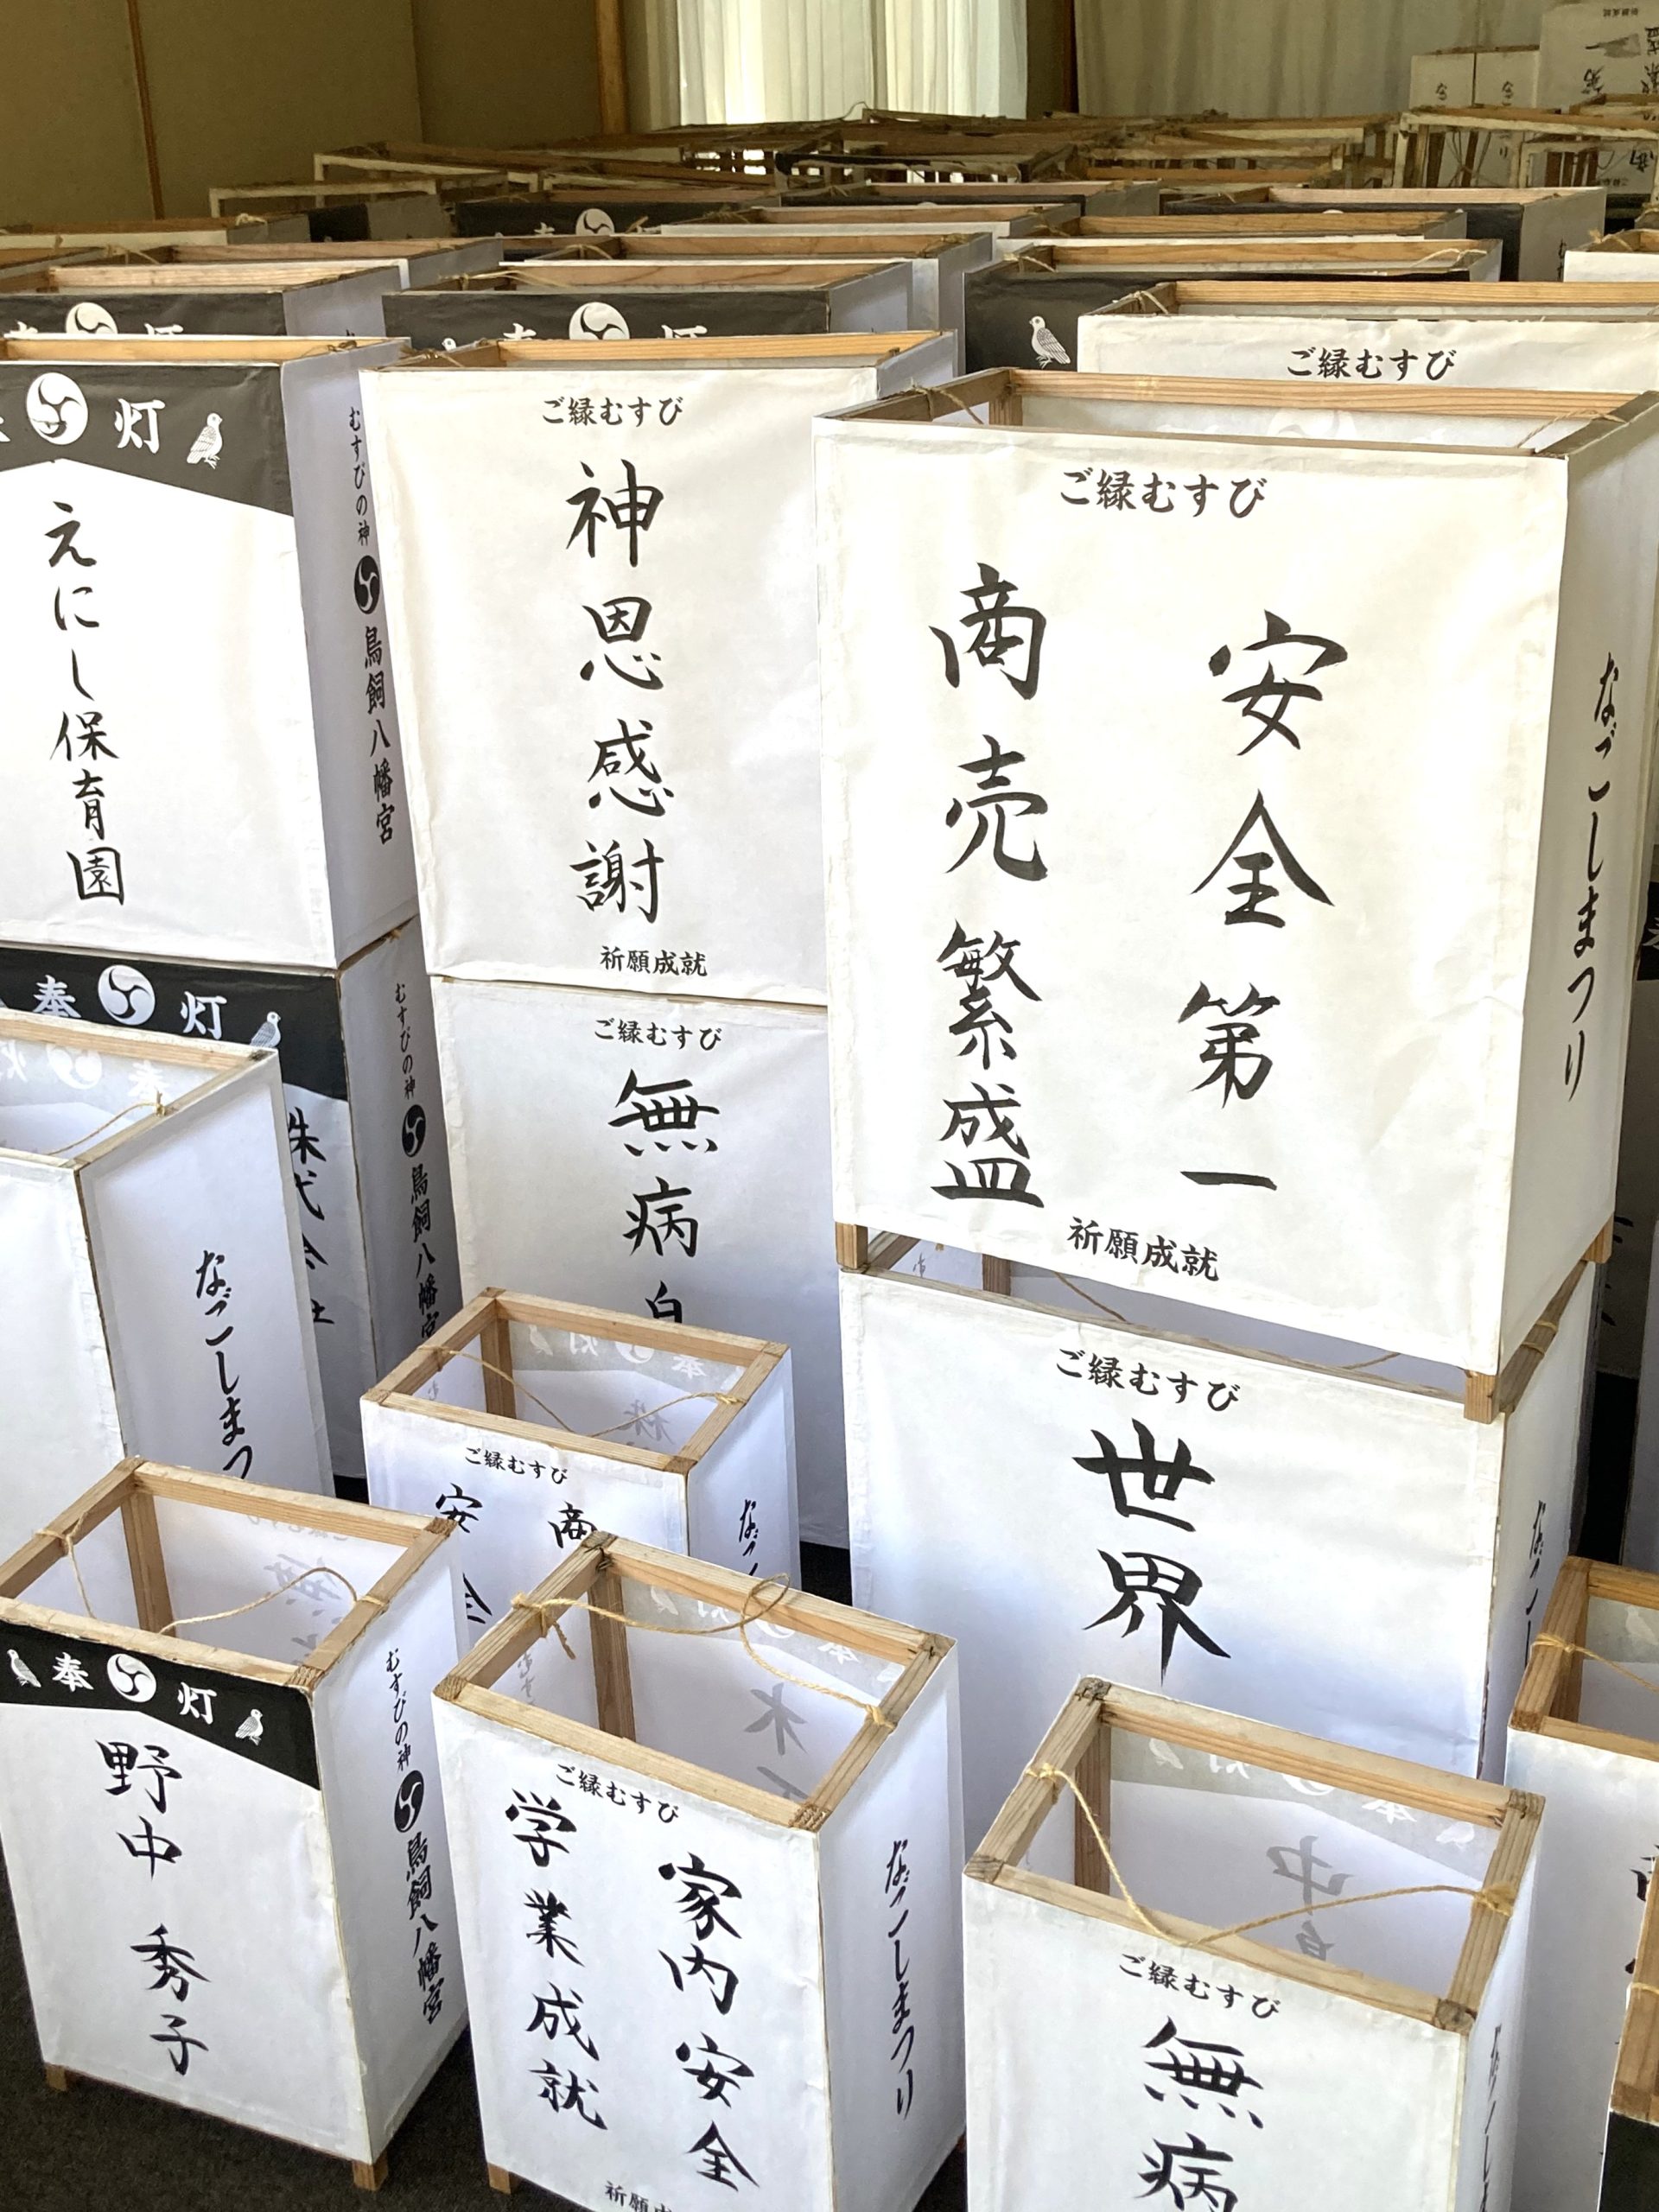 ご縁むすび
奉灯
えにし保育園
むすびの神
鳥飼八幡宮
ご縁むすび
神恩感謝
祈願成就
ご縁むすび
安全第一
商売繁盛
祈願成就
なごしまつり
奉灯
むすびの神
鳥飼八幡宮
ご縁むすび
無病
なごしまつ
ご縁むすび
世界
ご縁むすび
商
安全
奉灯
野中秀子
むすびの神
鳥飼八幡宮
ご縁むすび
家内安全
学業成就
祈願
なごしまつり
ご縁むすび
無病